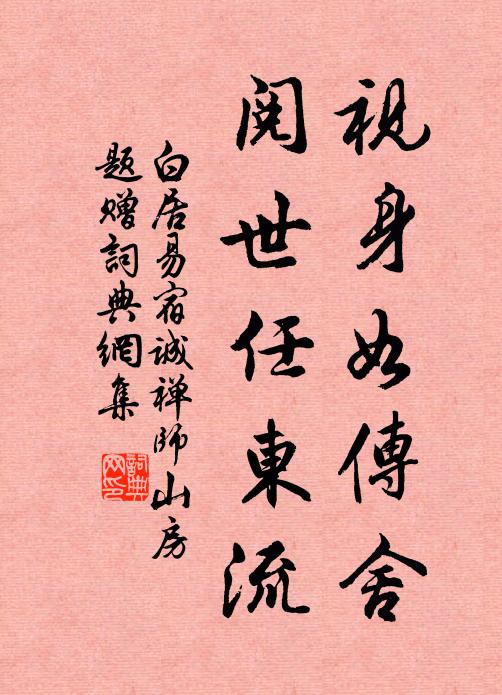 視身如傳舍
閱世任東流
白居易宿誠禅師山房
題赠詞典網集
詞典网印